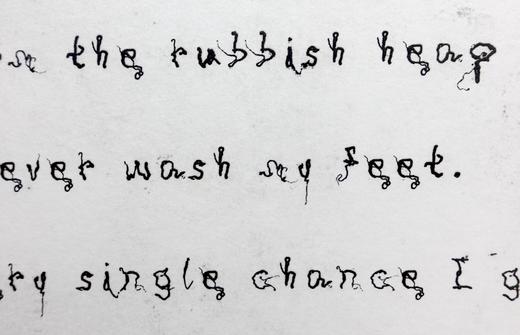 the rubbish heap
ever wash my feet.
ry single chance I g